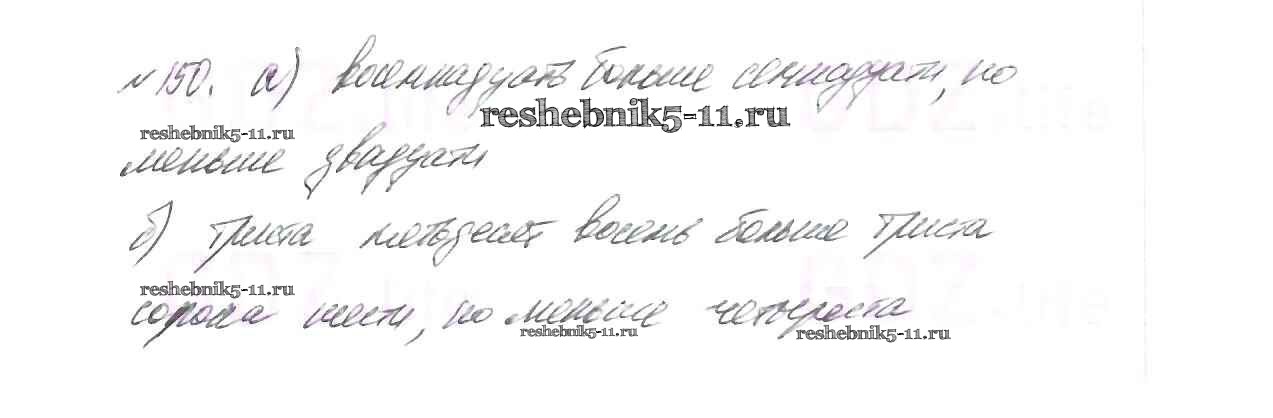 №150. а) восемнадцать больше семнадцати, но
reshebnik5-11.ru
reshebnik5-11.ru
меньше двадцати
б) триста пятьдесят восемь больше триста
reshebnik5-11.ru
сорока шести, но меньше четыреста
reshebnik5-11.ru
reshebnik5-11.ru